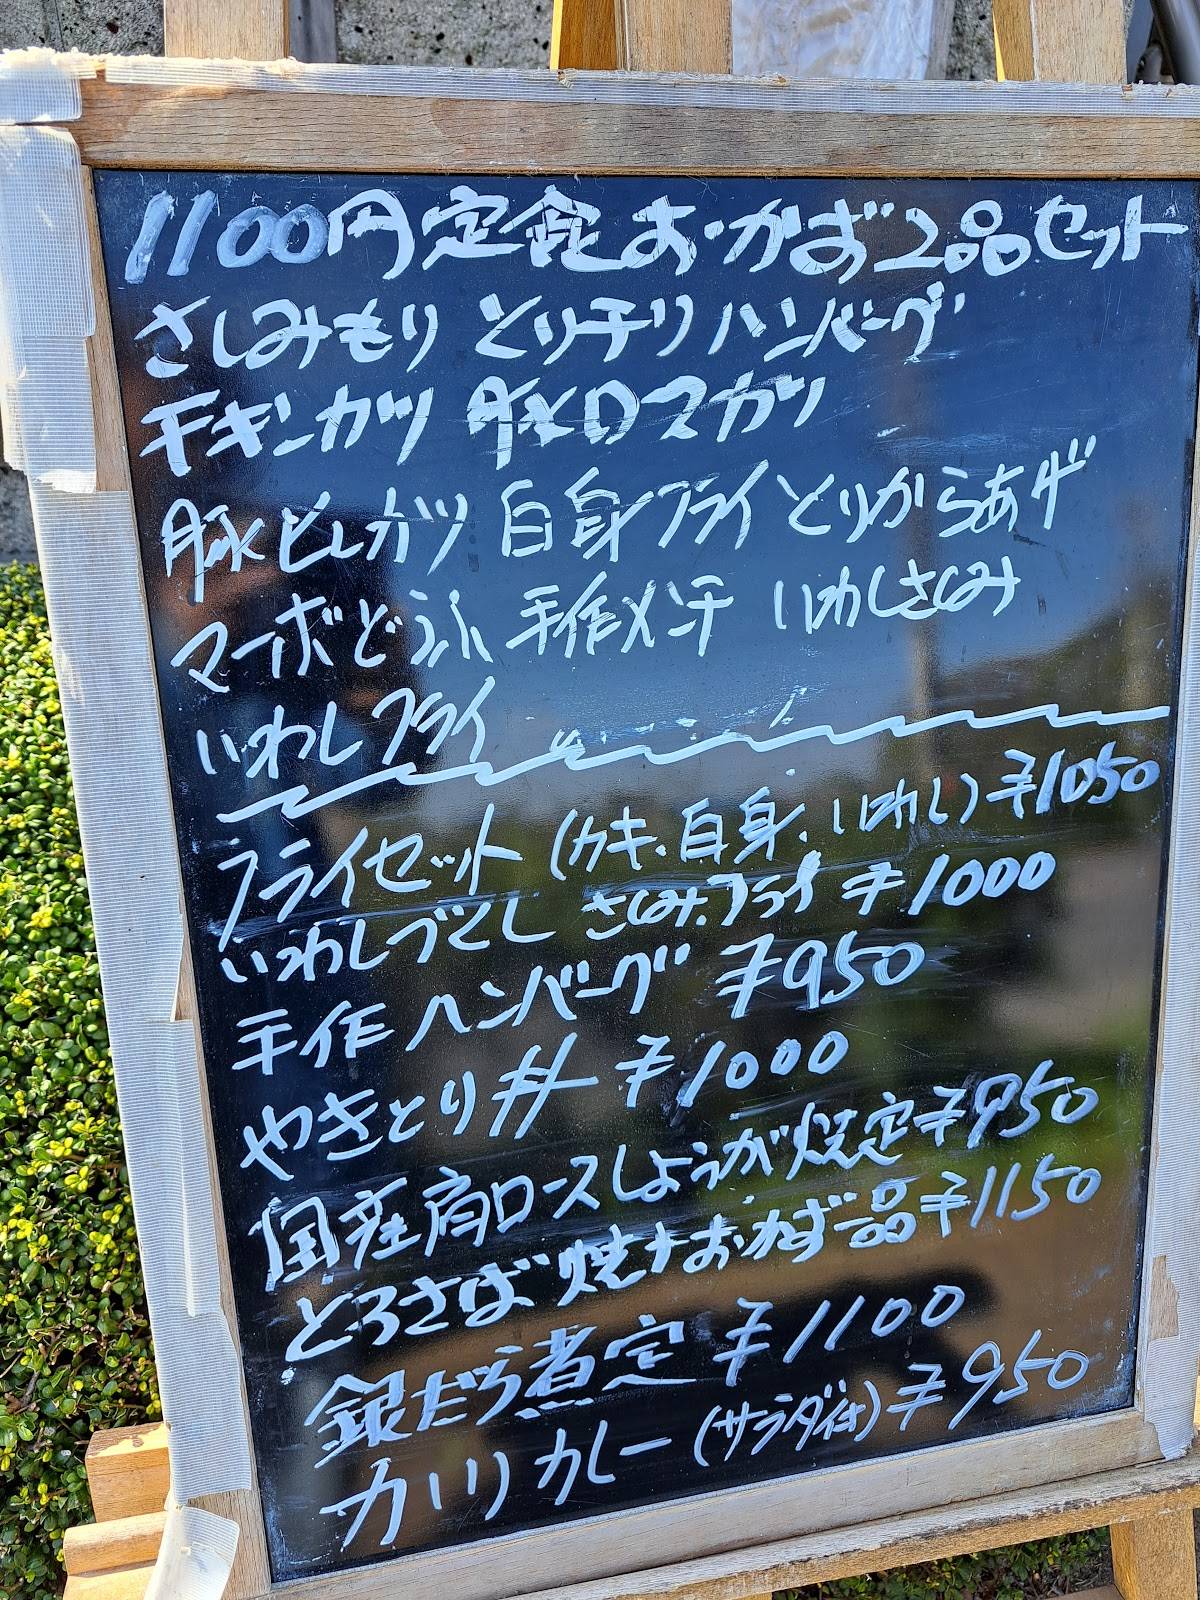 1100円定食おかず2品セット
さしみもり とりチリ ハンバーグ
チキンカツ 豚ロースカツ
豚ヒレカツ 白身フライ とりからあげ
マーボどうふ 手作メンチ いわしさしみ
いわしフライ
フライセット(カキ、白身、いわし)¥1050
いわしづくし さしみ、フライ ¥1000
手作ハンバーグ ¥950
やきとり丼 ¥1000
国産肩ロースしょうが焼定¥950
とろさば焼+おかず一品¥1150
銀だら煮定 ¥1100
カツカレー(サラダ付)¥950